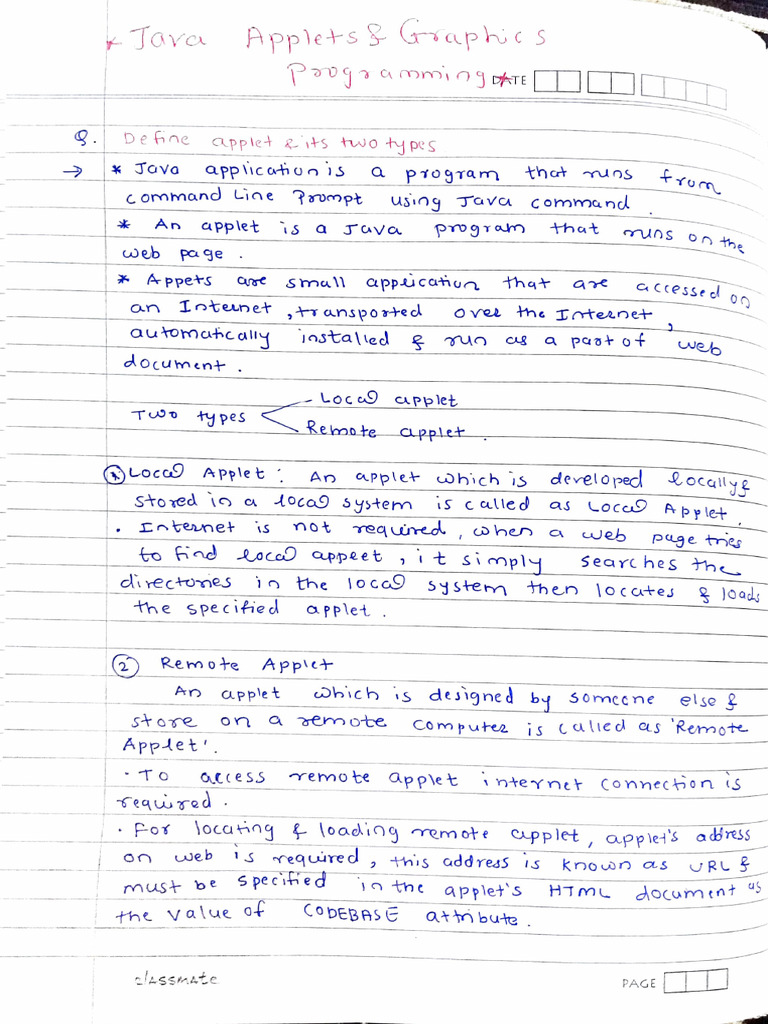 * Java Applets & Graphics
Programming *
DATE
Q. Define applet & its two types
→ * Java application is a program that runs from
command Line Prompt using Java command.
* An applet is a Java program that runs on the
web page.
* Appets are small application that are accessed on
an Internet, transported over the Internet,
automatically installed & run as a part of web
document.
Two types
Local applet
Remote applet.
* Local Applet: An applet which is developed locally &
stored in a local system is called as Local Applet.
· Internet is not required, when a web page tries
to find local appeet, it simply searches the
directories in the local system then locates & loads
the specified applet.
2 Remote Applet
An applet which is designed by someone else &
store on a remote computer is called as 'Remote
Applet'.
· To access remote applet internet connection is
required.
· For locating & loading remote applet, applet's address
on web is required, this address is known as URL &
must be specified in the applet's HTML document as
the value of CODEBASE attribute.
classmate
PAGE